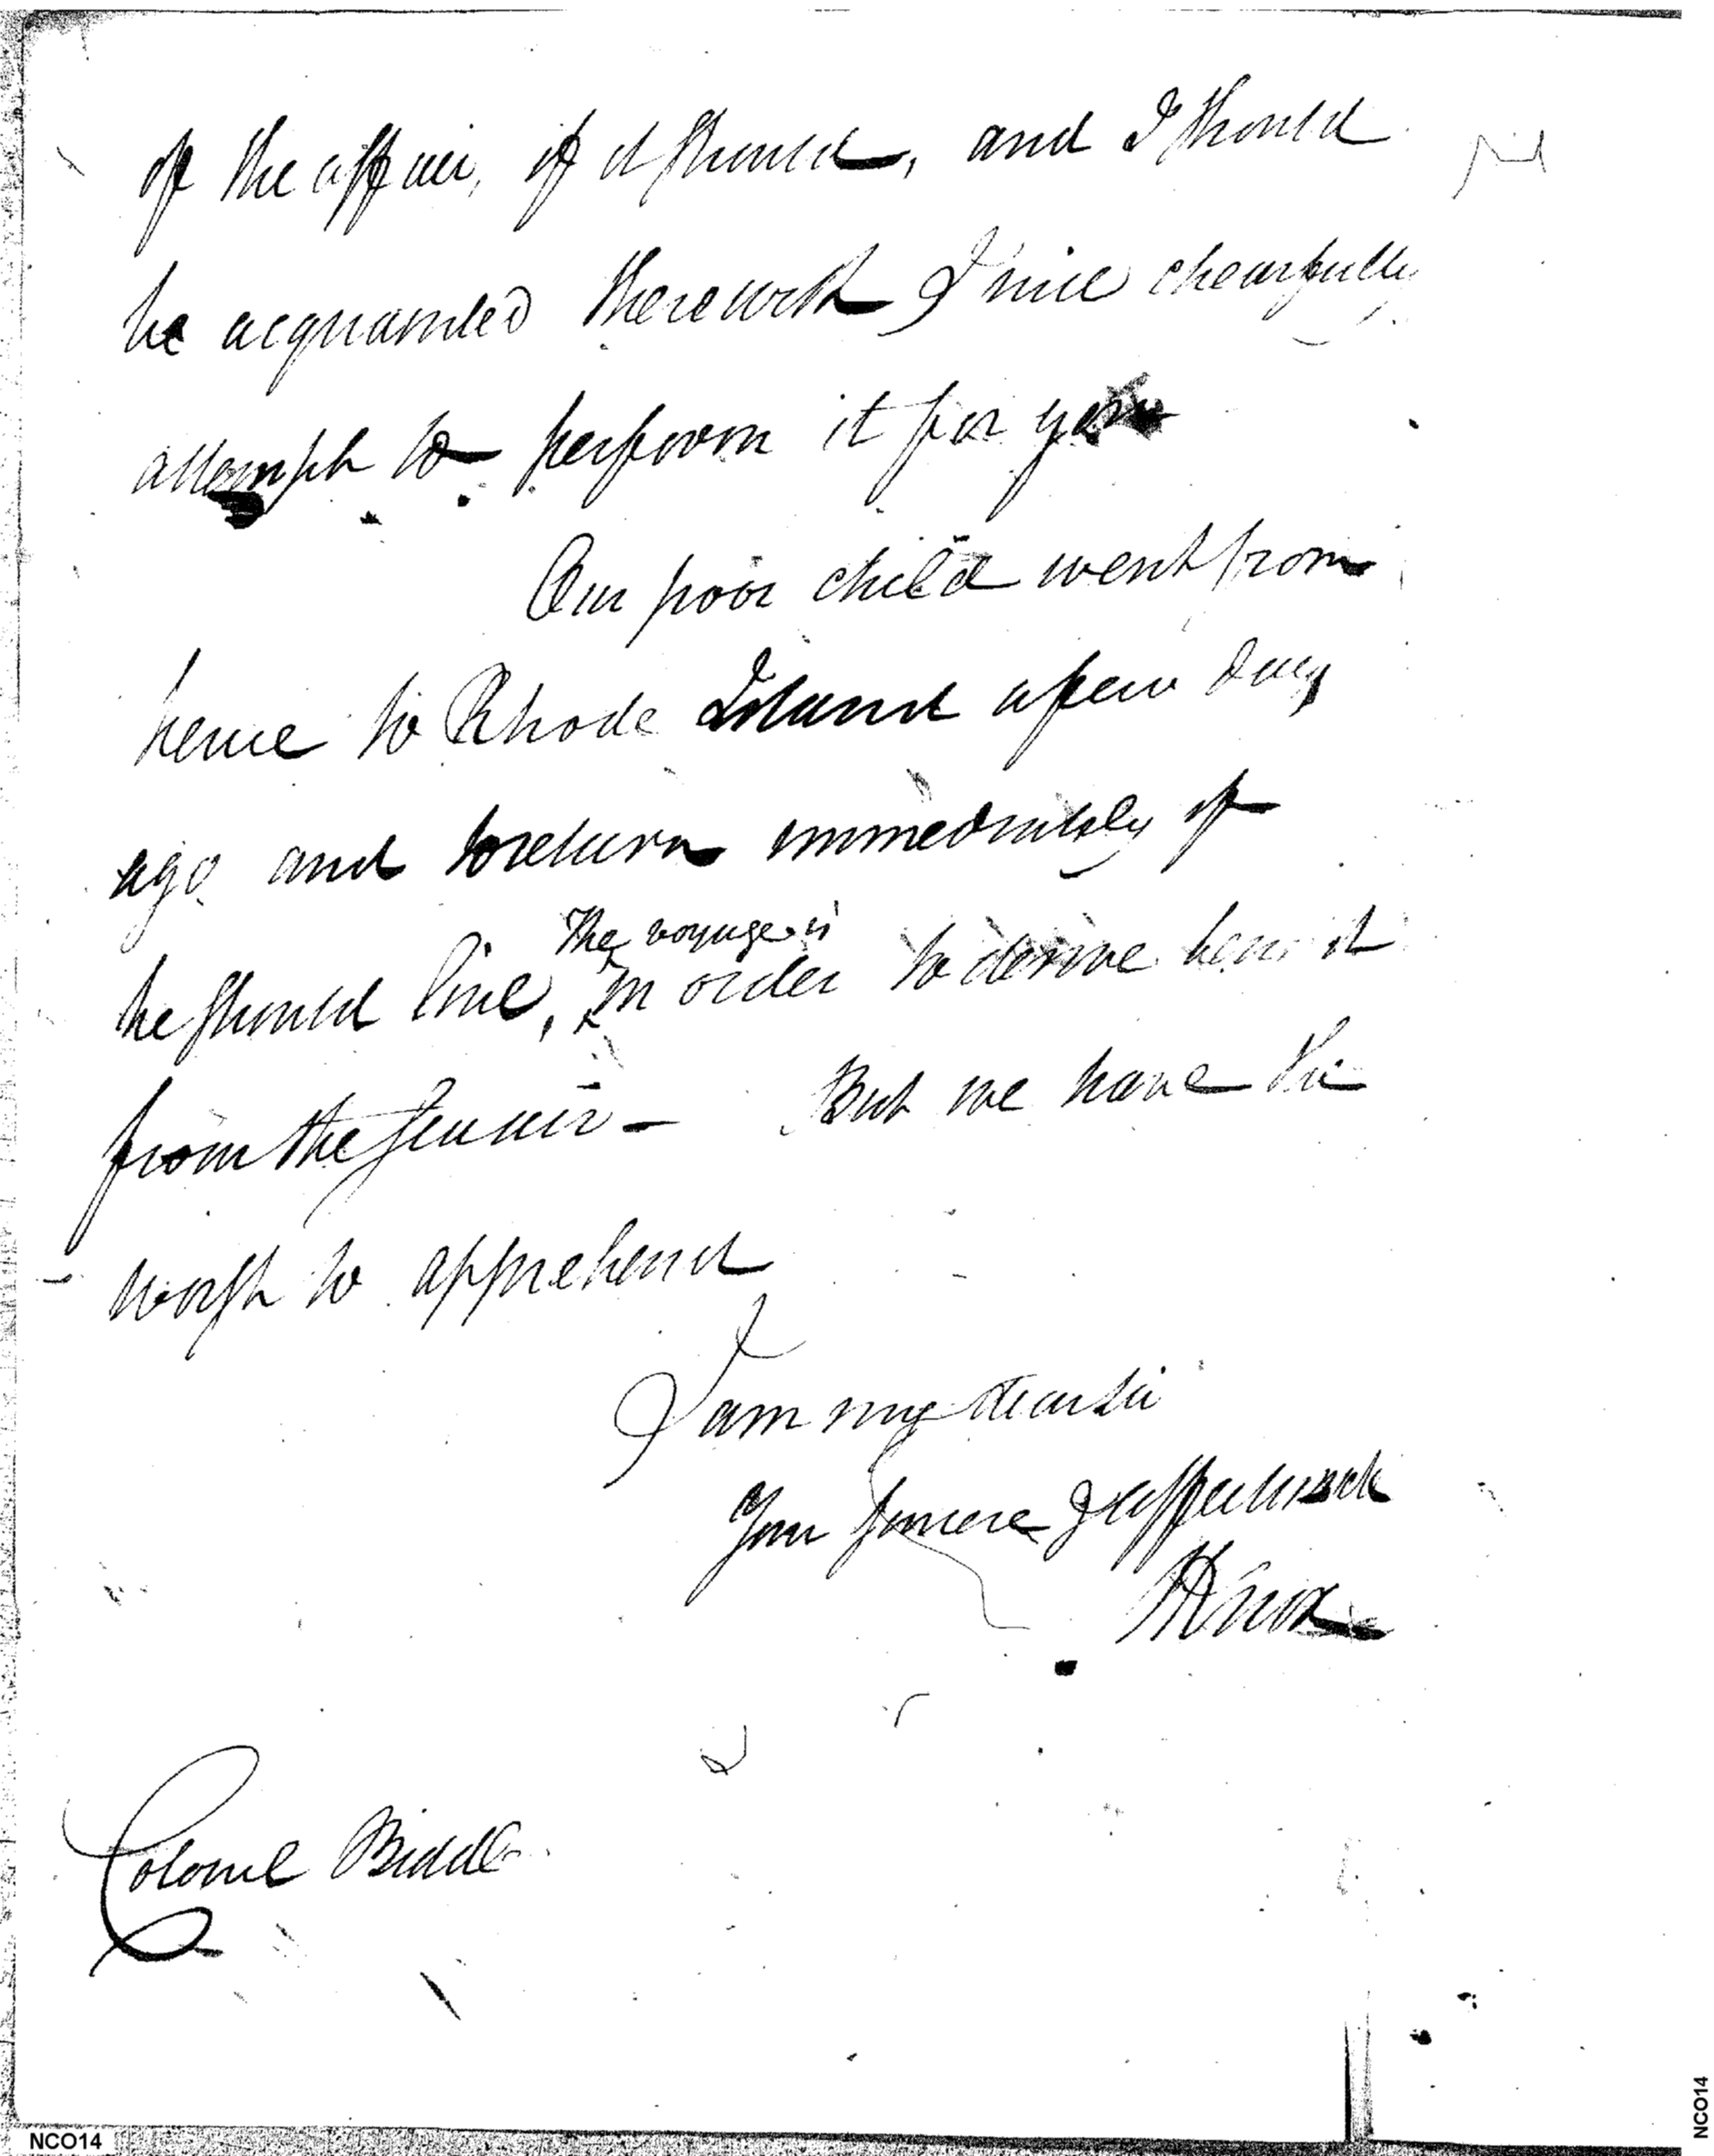 of the affair, if it should, and I should
be acquainted therewith I will chearfully
attempt to perform it for you
Our poor child went from
hence to Rhode Island a few days
ago and to return immediately if
The voyage is
he should live, in order to derive benefit
from the sea air – But we have the
worst to apprehend
I am my dear sir
Your sincere & affectionate
HKnox
Colonel Biddle
NCO14
NCO14